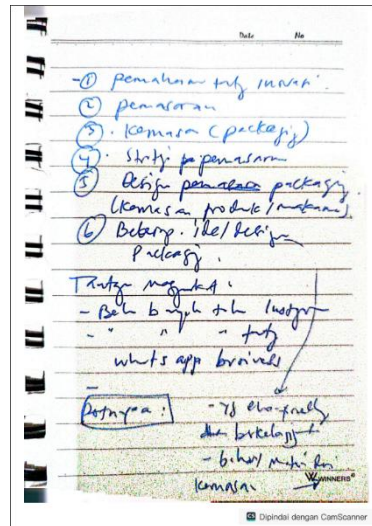 Date No
- ① pemahaman ttg inovasi.
② pemasaran
③. Kemasan (packaging)
④. Strategi pemasaran
⑤ Design packaging
(kemasan produk/makanan)
⑥ Beberapa ide/design
Packaging.
Tantangan masyarakat :
- Belum banyak tahu Instagram
- " " " ttg
whatsapp business
-
:
- yg eco-friendly
dan berkelanjutan
- bahan/materi dari
kemasan
WINNERS®
Dipindai dengan CamScanner